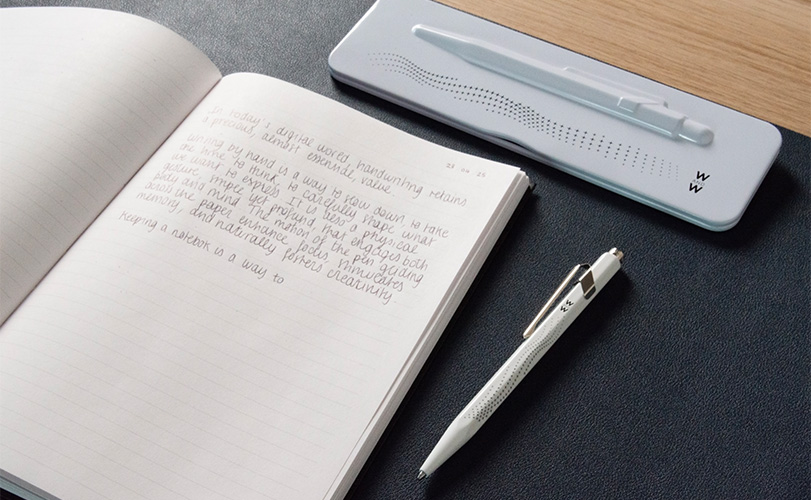 23 04 25
In today's digital world, handwriting retains
a precious, almost essential, value.
Writing by hand is a way to slow down, to take
the time to think, to carefully shape what
we want to express. It is also a physical
gesture, simple yet profound, that engages both
body and mind. The motion of the pen gliding
across the paper enhance focus, stimulates
memory, and naturally fosters creativity.
Keeping a notebook is a way to
W
W
W
W